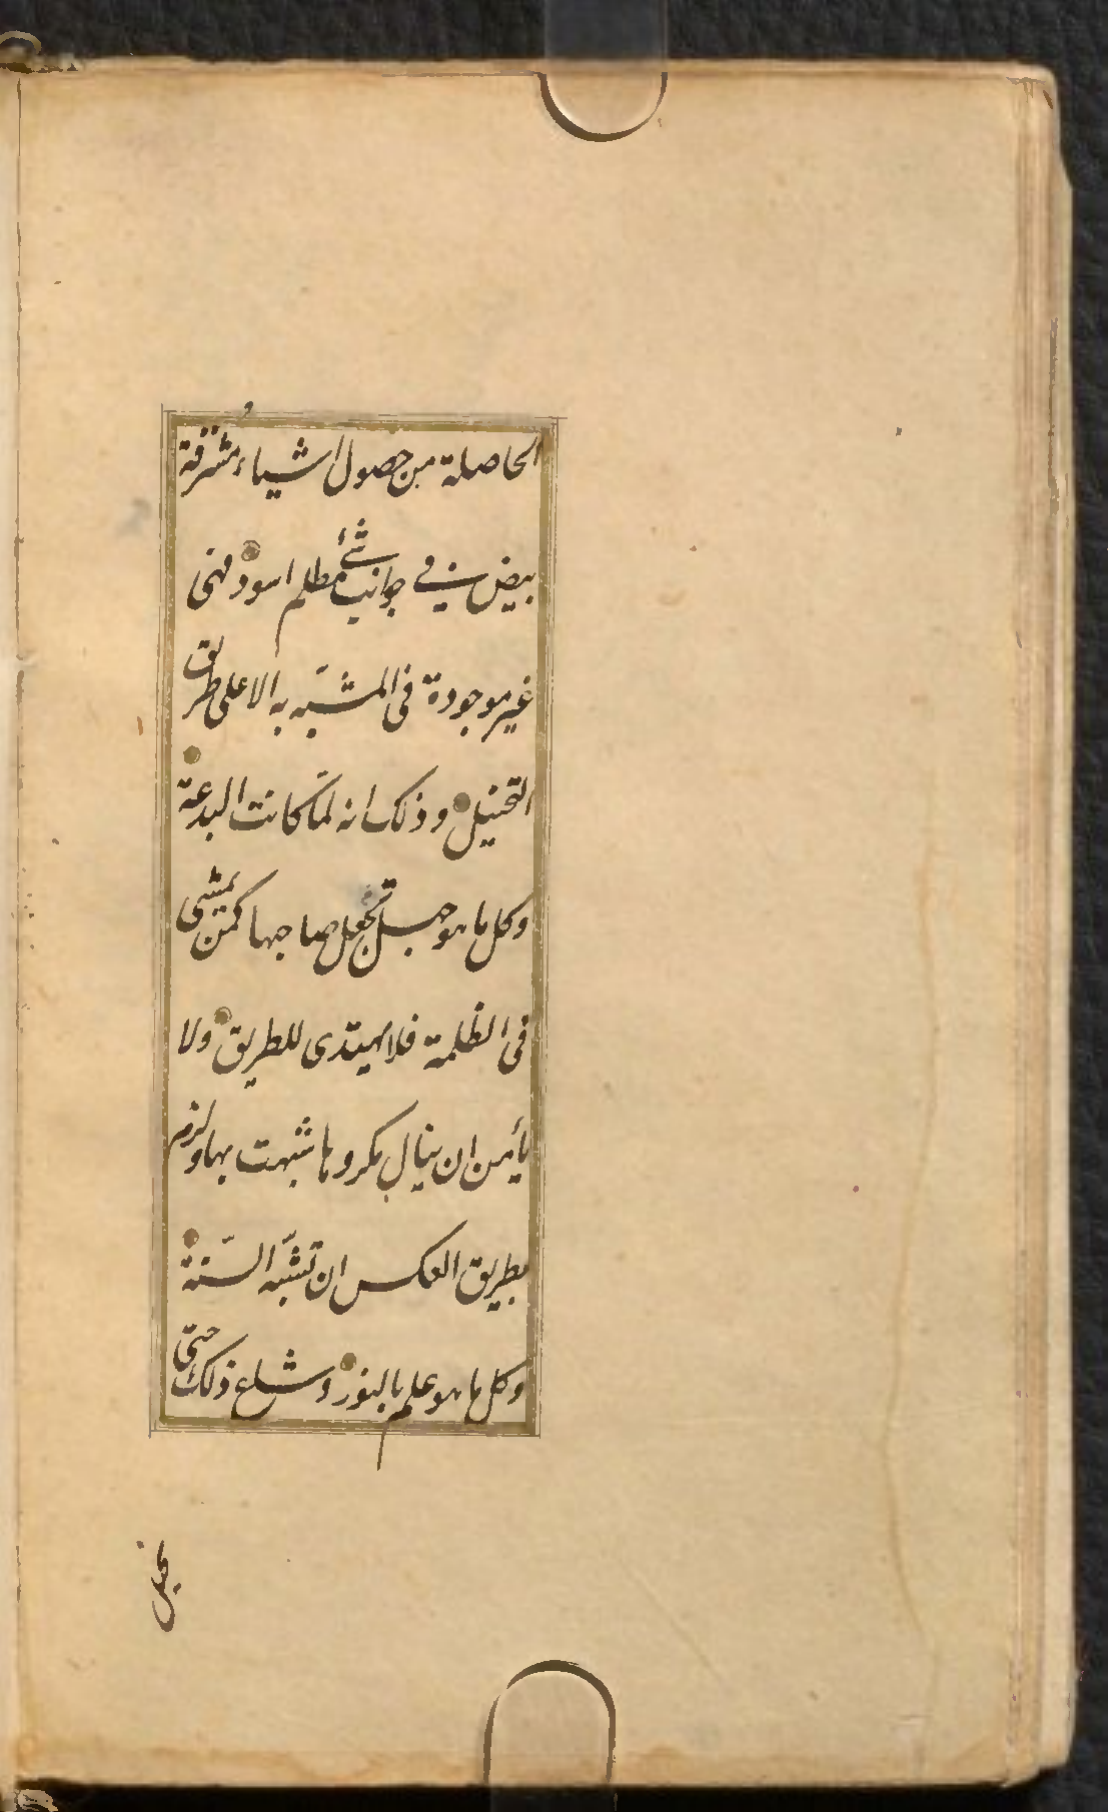 الحاصلة من حصول اشياء مشرقة
بيض في جوانب شئ مظلم اسود فهى
غير موجودة فى المشبّه به الا على طريق
التخييل وذلك انه لمّا كانت البدعة
وكل ما هو جهل تجعل صاحبها كمن يمشى
فى الظلمة فلا يهتدى للطريق ولا
يأمن ان ينال مكروها شبهت بها ولزم
بطريق العكس ان تشبّه السّنة
وكل ما هو علم بالنور وشاع ذلك حتى
تخيل